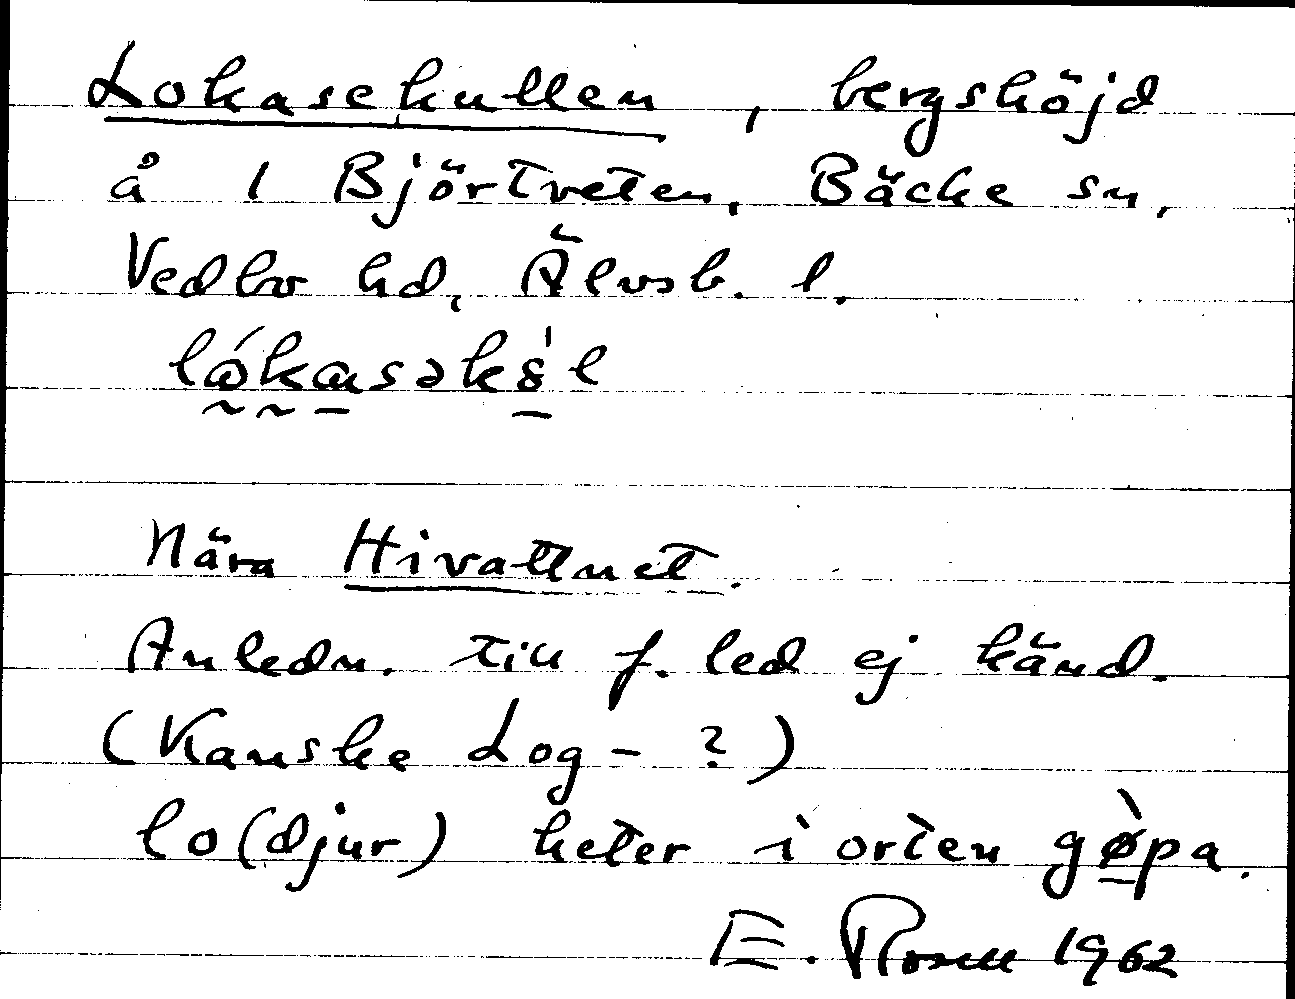 Lokasekullen, bergshöjd
å 1 Björtveten, Bäcke sn,
Vedbo hd, Älvsb. l.
lókasək8̍l
Nära Hivattnet.
Anledn. till f. led ej känd.
(Kanske Log- ?)
lo(djur) heter i orten gø̀pa.
E. Rosell 1962